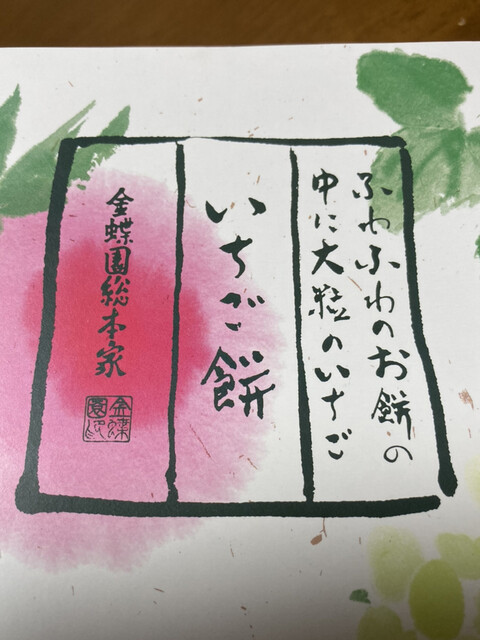 ふわふわのお餅の
中に大粒のいちご
いちご餅
金蝶園総本家